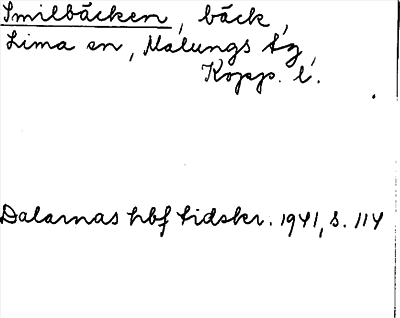 Smilbäcken, bäck,
Lima sn, Malungs tg,
Kopp. l.
Dalarnas hbf tidskr. 1941, s. 114